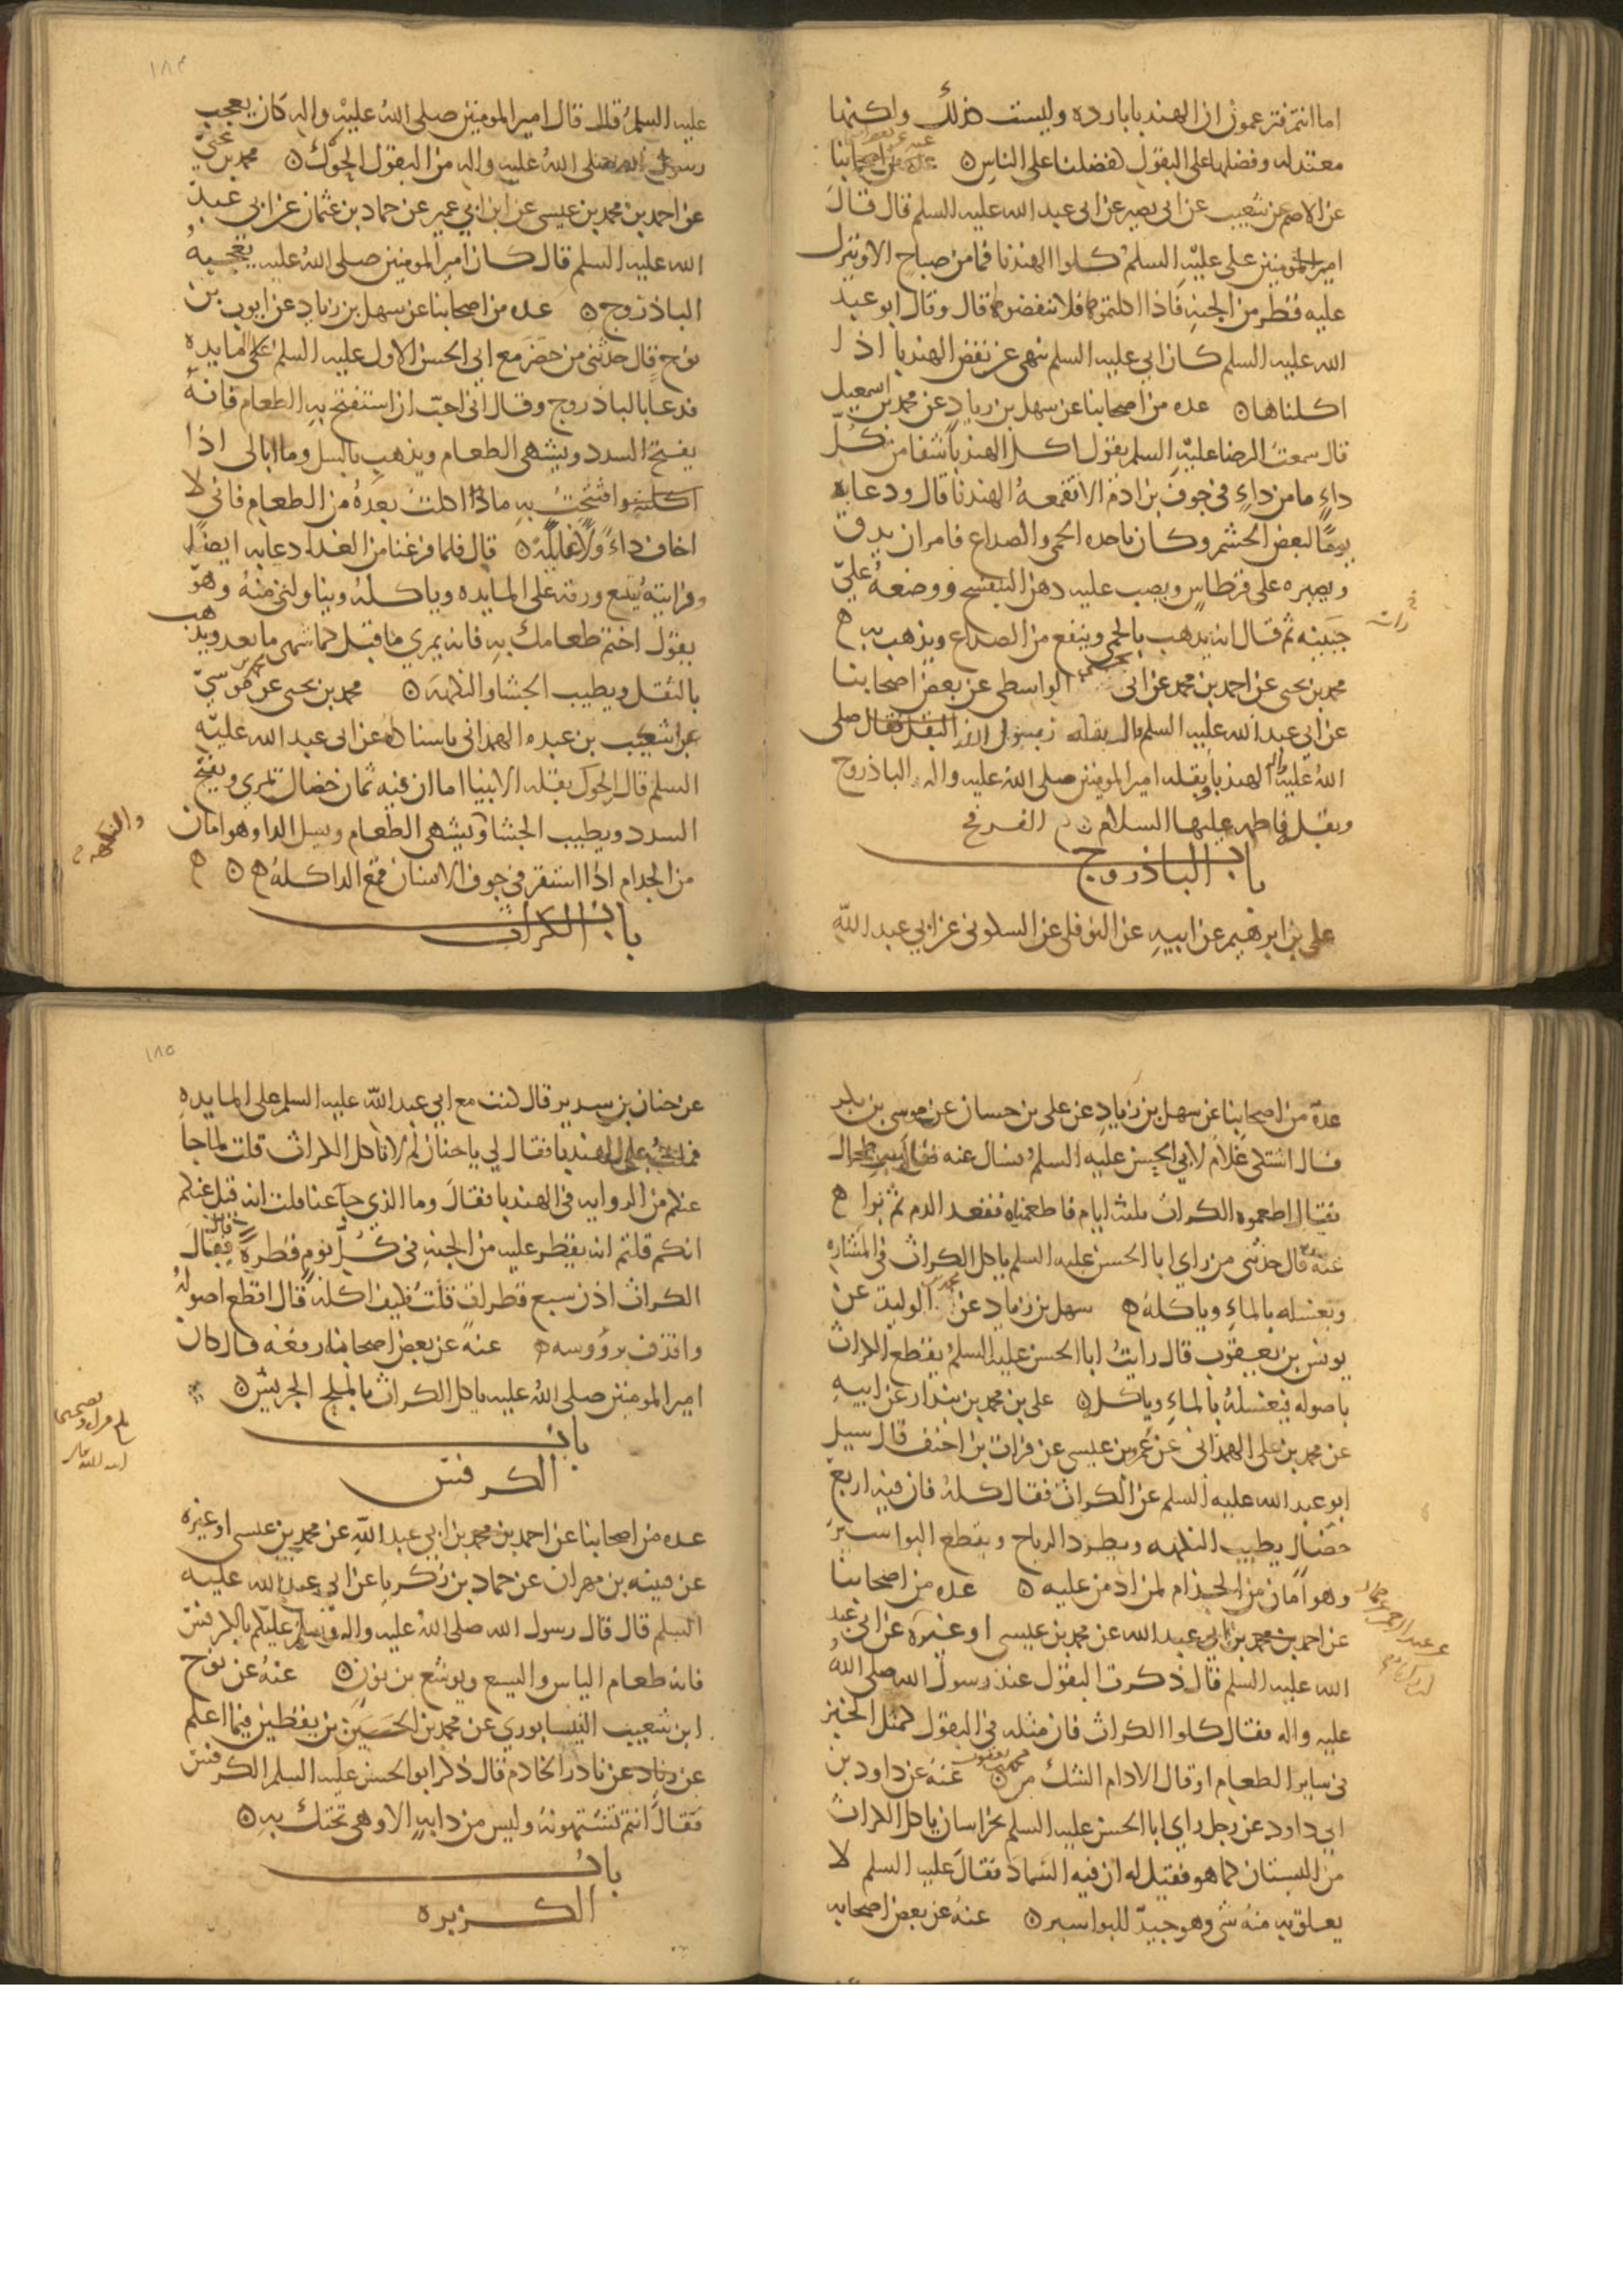 اما انتم فتزعمون ان الهندبا بارده وليست كذلك ولكنها
معتدله وفضلها على البقول كفضلنا على الناس ه عده من اصحابنا
عن الاصم عن شعيب عن ابي بصير عن ابي عبد الله عليه السلم قال قال
امير المومنين علي عليه السلم كلوا الهندبا فما من صباح الا وينزل
عليه قطر من الجنه فاذا اكلتموها فلا تنفضوها قال وقال ابو عبد
الله عليه السلم كان ابي عليه السلم ينهى عن نفض الهندبا اذا
اكلناها ه عده من اصحابنا عن سهل بن زياد عن محمد بن اسمعيل
قال سمعت الرضا عليه السلم يقول اكل الهندبا شفا من كل
داء ما من داء في جوف بن ادم الا تقمعه الهندبا قال ودعا به
يوما لبعض الحشم وكان تاخذه الحمى والصداع فامر ان يدق
ويصيره على قرطاس ويصب عليه دهن البنفسج ووضعه على
جبينه ثم قال انه يذهب بالحمى وينفع من الصداع ويذهب به ه
محمد بن يحيى عن احمد بن محمد عن ابي يحيى الواسطي عن بعض اصحابنا
عن ابي عبد الله عليه السلم قال بقله رسول الله صلى
الله عليه واله الهندبا وبقله امير المومنين صلى الله عليه واله الباذروج
وبقله فاطمه عليها السلام الفرفخ
باب الباذروج
علي بن ابرهيم عن ابيه عن النوفلي عن السكوني عن ابي عبد الله
١٨٤
عليه السلم قال قال امير المومنين صلى الله عليه واله كان يعجب
رسول الله صلى الله عليه واله من البقول الحوك ه محمد بن يحيى
عن احمد بن محمد بن عيسى عن ابن ابي عمير عن حماد بن عثمان عن ابي عبد
الله عليه السلم قال كان امير المومنين صلى الله عليه يعجبه
الباذروج ه عده من اصحابنا عن سهل بن زياد عن ايوب بن
نوح قال حدثني من حضر مع ابي الحسن الاول عليه السلم على المايده
فدعا بالباذروج وقال اني احب ان استفتح به الطعام فانه
يفتح السدد ويشهي الطعام ويذهب بالسل وما ابالي اذا
افتتحت به ماذا اكلت بعده من الطعام فاني لا
اخاف داء ولا غايله ه قال فلما فرغنا من الغداء دعا به ايضا
ورايته يتبع ورقه على المايده وياكله ويناولني منه وهو
يقول اختم طعامك به فانه يمري ما قبل كما شهى ما بعد ويذهب
بالثقل ويطيب الجشا والنكهه ه محمد بن يحيى عن محمد بن موسى
عن اشكيب بن عبده الهمداني باسناده عن ابي عبد الله عليه
السلم قال الحوك بقله الانبيا اما ان فيه ثمان خصال تمري ويفتح
السدد ويطيب الجشا ويشهي الطعام ويسل الدا وهو امان
والنكهه
من الجذام اذا استقر في جوف الانسان قمع الدا كله ه ه
باب الكراث
عدة من اصحابنا عن سهل بن زياد عن علي بن حسان عن موسى بن بكر
قال اشتكى غلام لابي الحسن عليه السلم فسال عنه فقال به طحال
فقال اطعموه الكراث ثلثه ايام فاطعمناه فقعد الدم ثم برا ه
عنه قال حدثني من راى ابا الحسن عليه السلم ياكل الكراث في المشاره
ويغسله بالماء وياكله ه سهل بن زياد عن محمد بن الوليد عن
يونس بن يعقوب قال رايت ابا الحسن عليه السلم يقطع الكراث
باصوله فيغسله بالماء وياكله ه علي بن محمد بن بندار عن ابيه
عن محمد بن علي الهمداني عن عمرو بن عيسى عن فرات بن احنف قال سيل
ابو عبد الله عليه السلم عن الكراث فقال كله فان فيه اربع
خصال يطيب النكهه ويطرد الرياح ويقطع البواسير
وهو امان من الجذام لمن ادمن عليه ه عده من اصحابنا
عن احمد بن محمد بن ابي عبد الله عن محمد بن عيسى او غيره عن ابي عبد
الله عليه السلم قال ذكرت البقول عند رسول الله صلى الله
عليه واله فقال كلوا الكراث فان مثله في البقول كمثل الخبز
في ساير الطعام او قال الادام الشك من محمد بن يعقوب ه عنه عن داود بن
ابي داود عن رجل راى ابا الحسن عليه السلم بخراسان ياكل الكراث
من البستان كما هو فقيل له ان فيه السماد فقال عليه السلم لا
يعلق به منه شي وهو جيد للبواسير ه عنه عن بعض اصحابه
١٨٥
عن حنان بن سدير قال كنت مع ابي عبد الله عليه السلم على المايده
فملت على الهندبا فقال لي يا حنان لم لا تاكل الكراث قلت لما جا
عنكم من الروايه في الهندبا فقال وما الذي جآ عنا قلت انه قيل عنكم
انكم قلتم انه يقطر عليه من الجنه في كل يوم قطرة قال فقال
الكراث اذن سبع قطرات قلت فكيف اكله قال اقطع اصوله
واقذف برووسه ه عنه عن بعض اصحابنا رفعه قال كان
امير المومنين صلى الله عليه ياكل الكراث بالملح الجريش ه
باب
الكرفس
عده من اصحابنا عن احمد بن محمد بن ابي عبد الله عن محمد بن عيسى او غيره
عن قتيبه بن مهران عن حماد بن زكريا عن ابي عبد الله عليه
السلم قال قال رسول الله صلى الله عليه واله عليكم بالكرفس
فانه طعام الياس واليسع ويوشع بن نون ه عنه عن نوح
ابن شعيب النيسابوري عن محمد بن الحسين بن يقطين فيما اعلم
عن نادر الخادم قال ذكر ابو الحسن عليه السلم الكرفس
فقال انتم تشتهونه وليس من دابه الا وهي تحتك به ه
باب
الكزبره